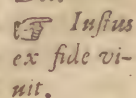 ☞ Iustus
ex fide vi-
uit.